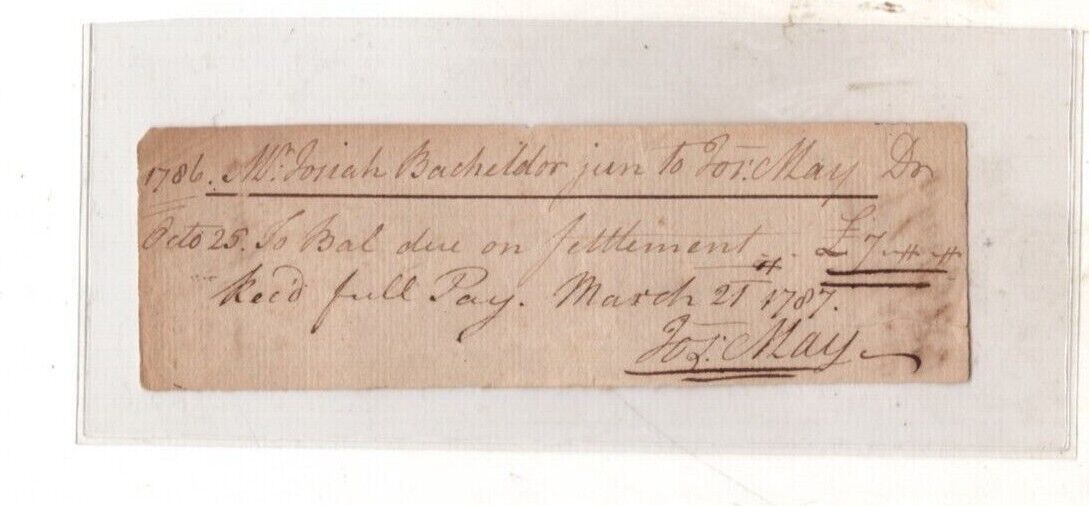 1786. Mr. Josiah Bacheldor jun to Jos: May Dr
Octo 25. To Bal due on Settlement £7.#.#
Rec'd full Pay. March 21 1787.
Jos: May